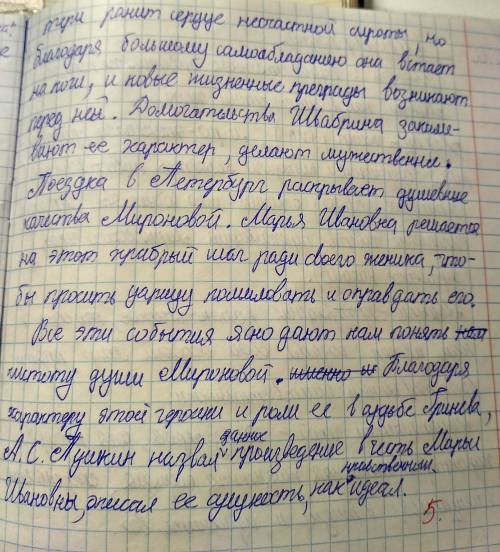 ранит сердце несчастной сироты, но
благодаря большому самообладанию она встает
на ноги, и новые жизненные преграды возникают
перед ней. Домогательства Швабрина закали-
вают ее характер, делают мужественнее.
Поездка в Петербург раскрывает душевные
качества Мироновой. Марья Ивановна решается
на этот храбрый шаг ради своего жениха, что-
бы просить царицу помиловать и оправдать его.
Все эти события ясно дают нам понять нам
чистоту души Мироновой. именно и Благодаря
характеру этой героини и роли ее в судьбе Гринева,
А.С. Пушкин назвал данное произведение в честь Марьи
Ивановны, описал ее сущность, как нравственный идеал.
5.